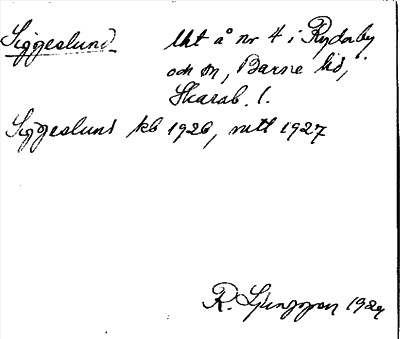 Siggeslund lht å nr 4 i Ryda by
och sn, Barne hd,
Skarab. l.
Siggeslund kb 1926, mtl 1927
R. Ljunggren 1927